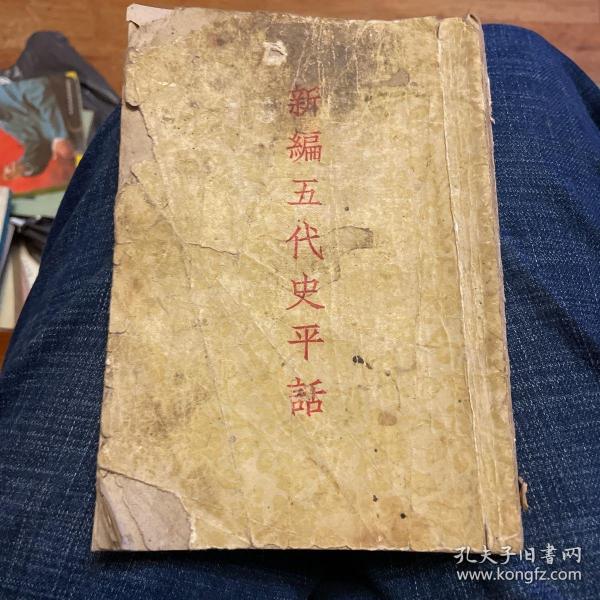 新編五代史平話
孔夫子旧書网
www.kongfz.com